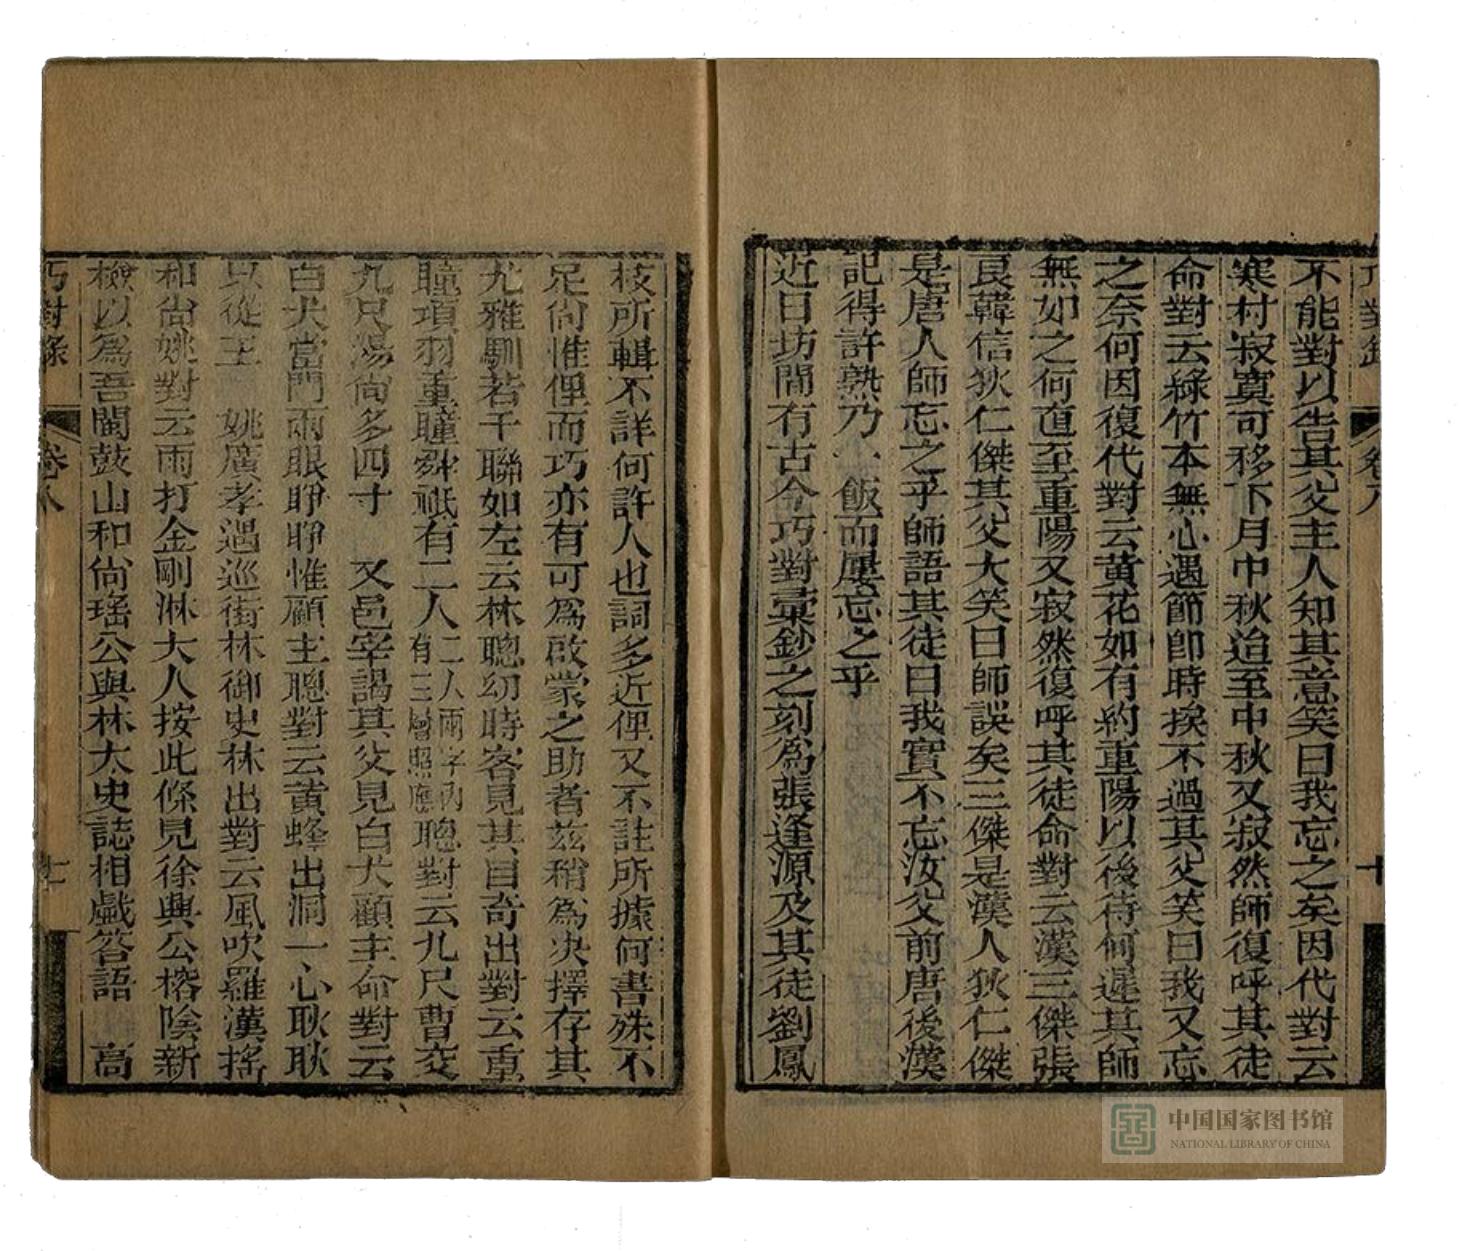 巧對錄
卷八
十
不能對以告其父主人知其意笑曰我忘之矣因代對云
寒村寂寞可移下月中秋迨至中秋又寂然師復呼其徒
命對云綠竹本無心遇節卽時挨不過其父笑曰我又忘
之奈何因復代對云黃花如有約重陽以後待何遲其師
無如之何直至重陽又寂然復呼其徒命對云漢三傑張
良韓信狄仁傑其父大笑曰師誤矣三傑是漢人狄仁傑
是唐人師忘之乎師語其徒曰我實不忘汝父前唐後漢
記得許熟乃一飯而屢忘之乎
近日坊間有古今巧對彙鈔之刻爲張逢源及其徒劉鳳
枝所輯不詳何許人也詞多近俚又不註所據何書殊不
足尙惟俚而巧亦有可爲啟蒙之助者茲稍爲決擇存其
尤雅馴若干聯如左云林聰幼時客見其目奇出對云重
瞳項羽重瞳舜祇有二人二人兩字內有三層照應聰對云九尺曹交
九尺湯尙多四寸 又邑宰謁其父見白犬顧主命對云
白犬當門兩眼睜睜惟顧主聰對云黃蜂出洞一心耿耿
只從王 姚廣孝遇巡街林御史林出對云風吹羅漢搖
和尙姚對云雨打金剛淋大人按此條見徐興公榕陰新
檢以爲吾閩鼓山和尙瑤公與林大史誌相戲答語 高
巧對錄
卷八
十一
中国国家图书馆
NATIONAL LIBRARY OF CHINA